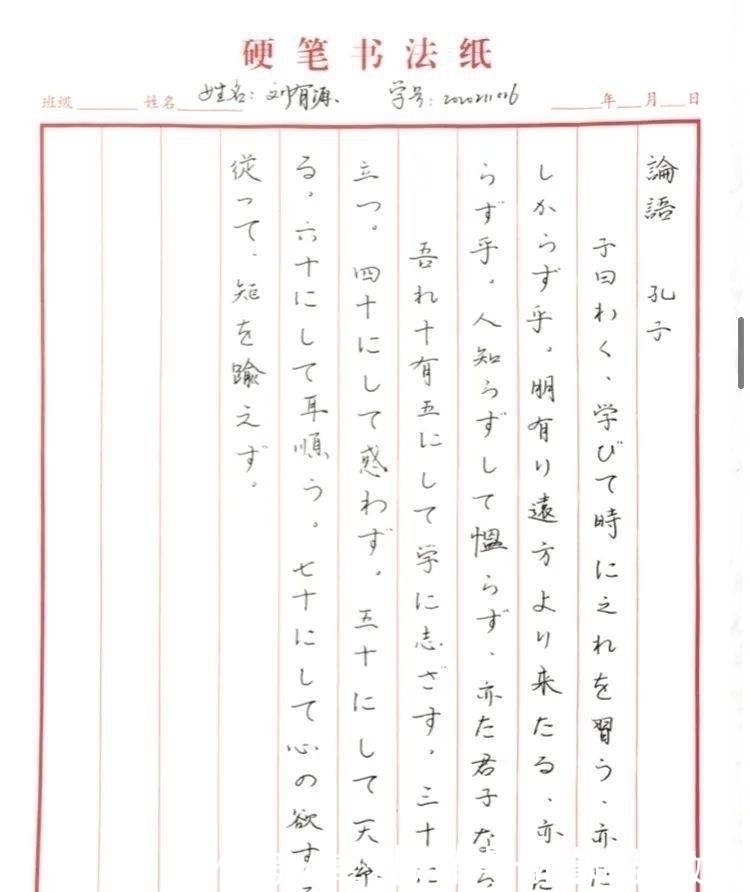 硬笔书法纸
班级 姓名 姓名: 刘 学号: 年 月 日
論語 孔子
子曰わく、学びて時に之れを習う、亦
しからず乎。朋有り遠方より来たる、亦た
らず乎。人知らずして慍らず、亦た君子なら
吾れ十有五にして学に志ざす。三十に
立つ。四十にして惑わず。五十にして天命
る。六十にして耳順う。七十にして心の欲する
従って、矩を踰えず。